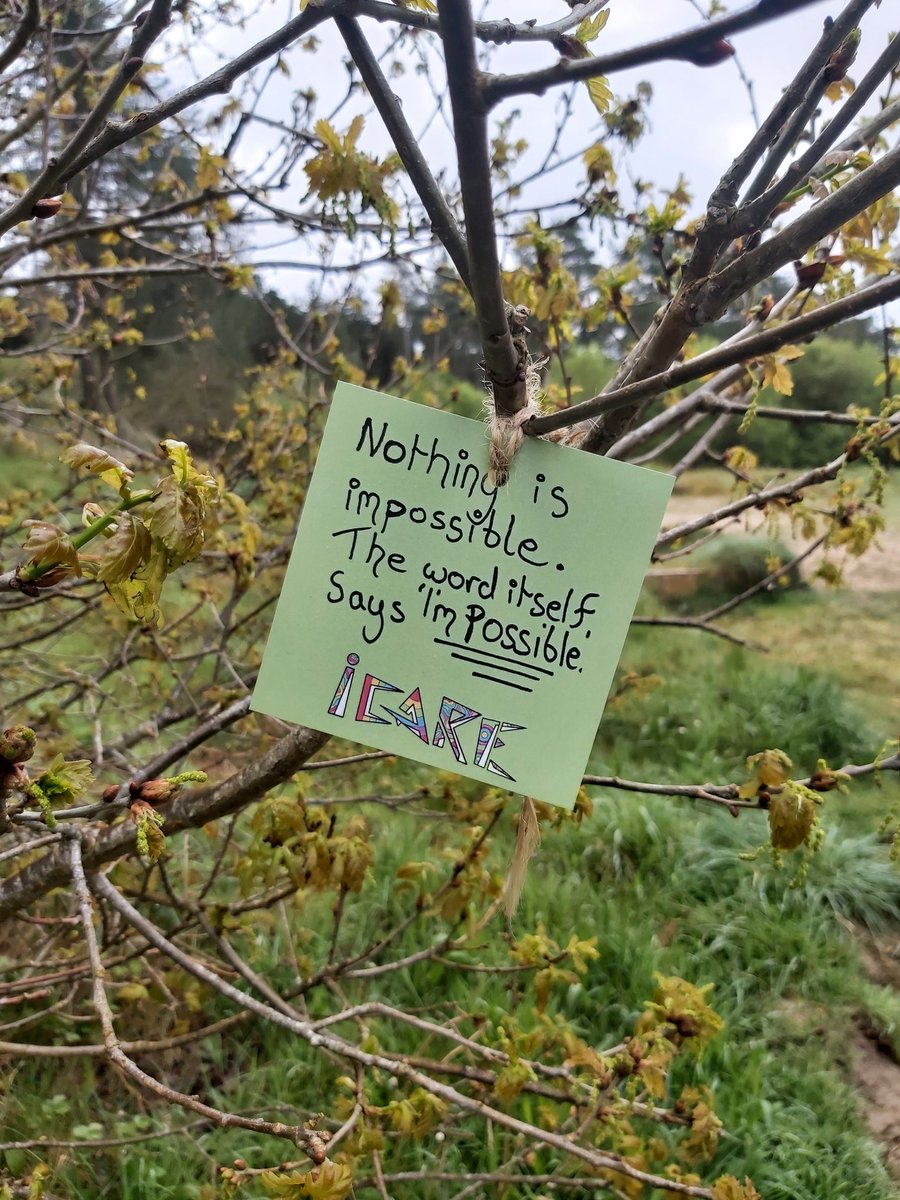 Nothing is
impossible.
The word itself
Says 'I'm Possible'.
iCARE